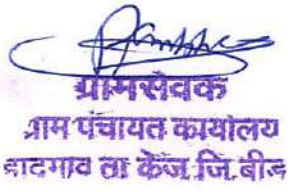 ग्रामसेवक
ग्राम पंचायत कार्यालय
ता केज जि. बीड